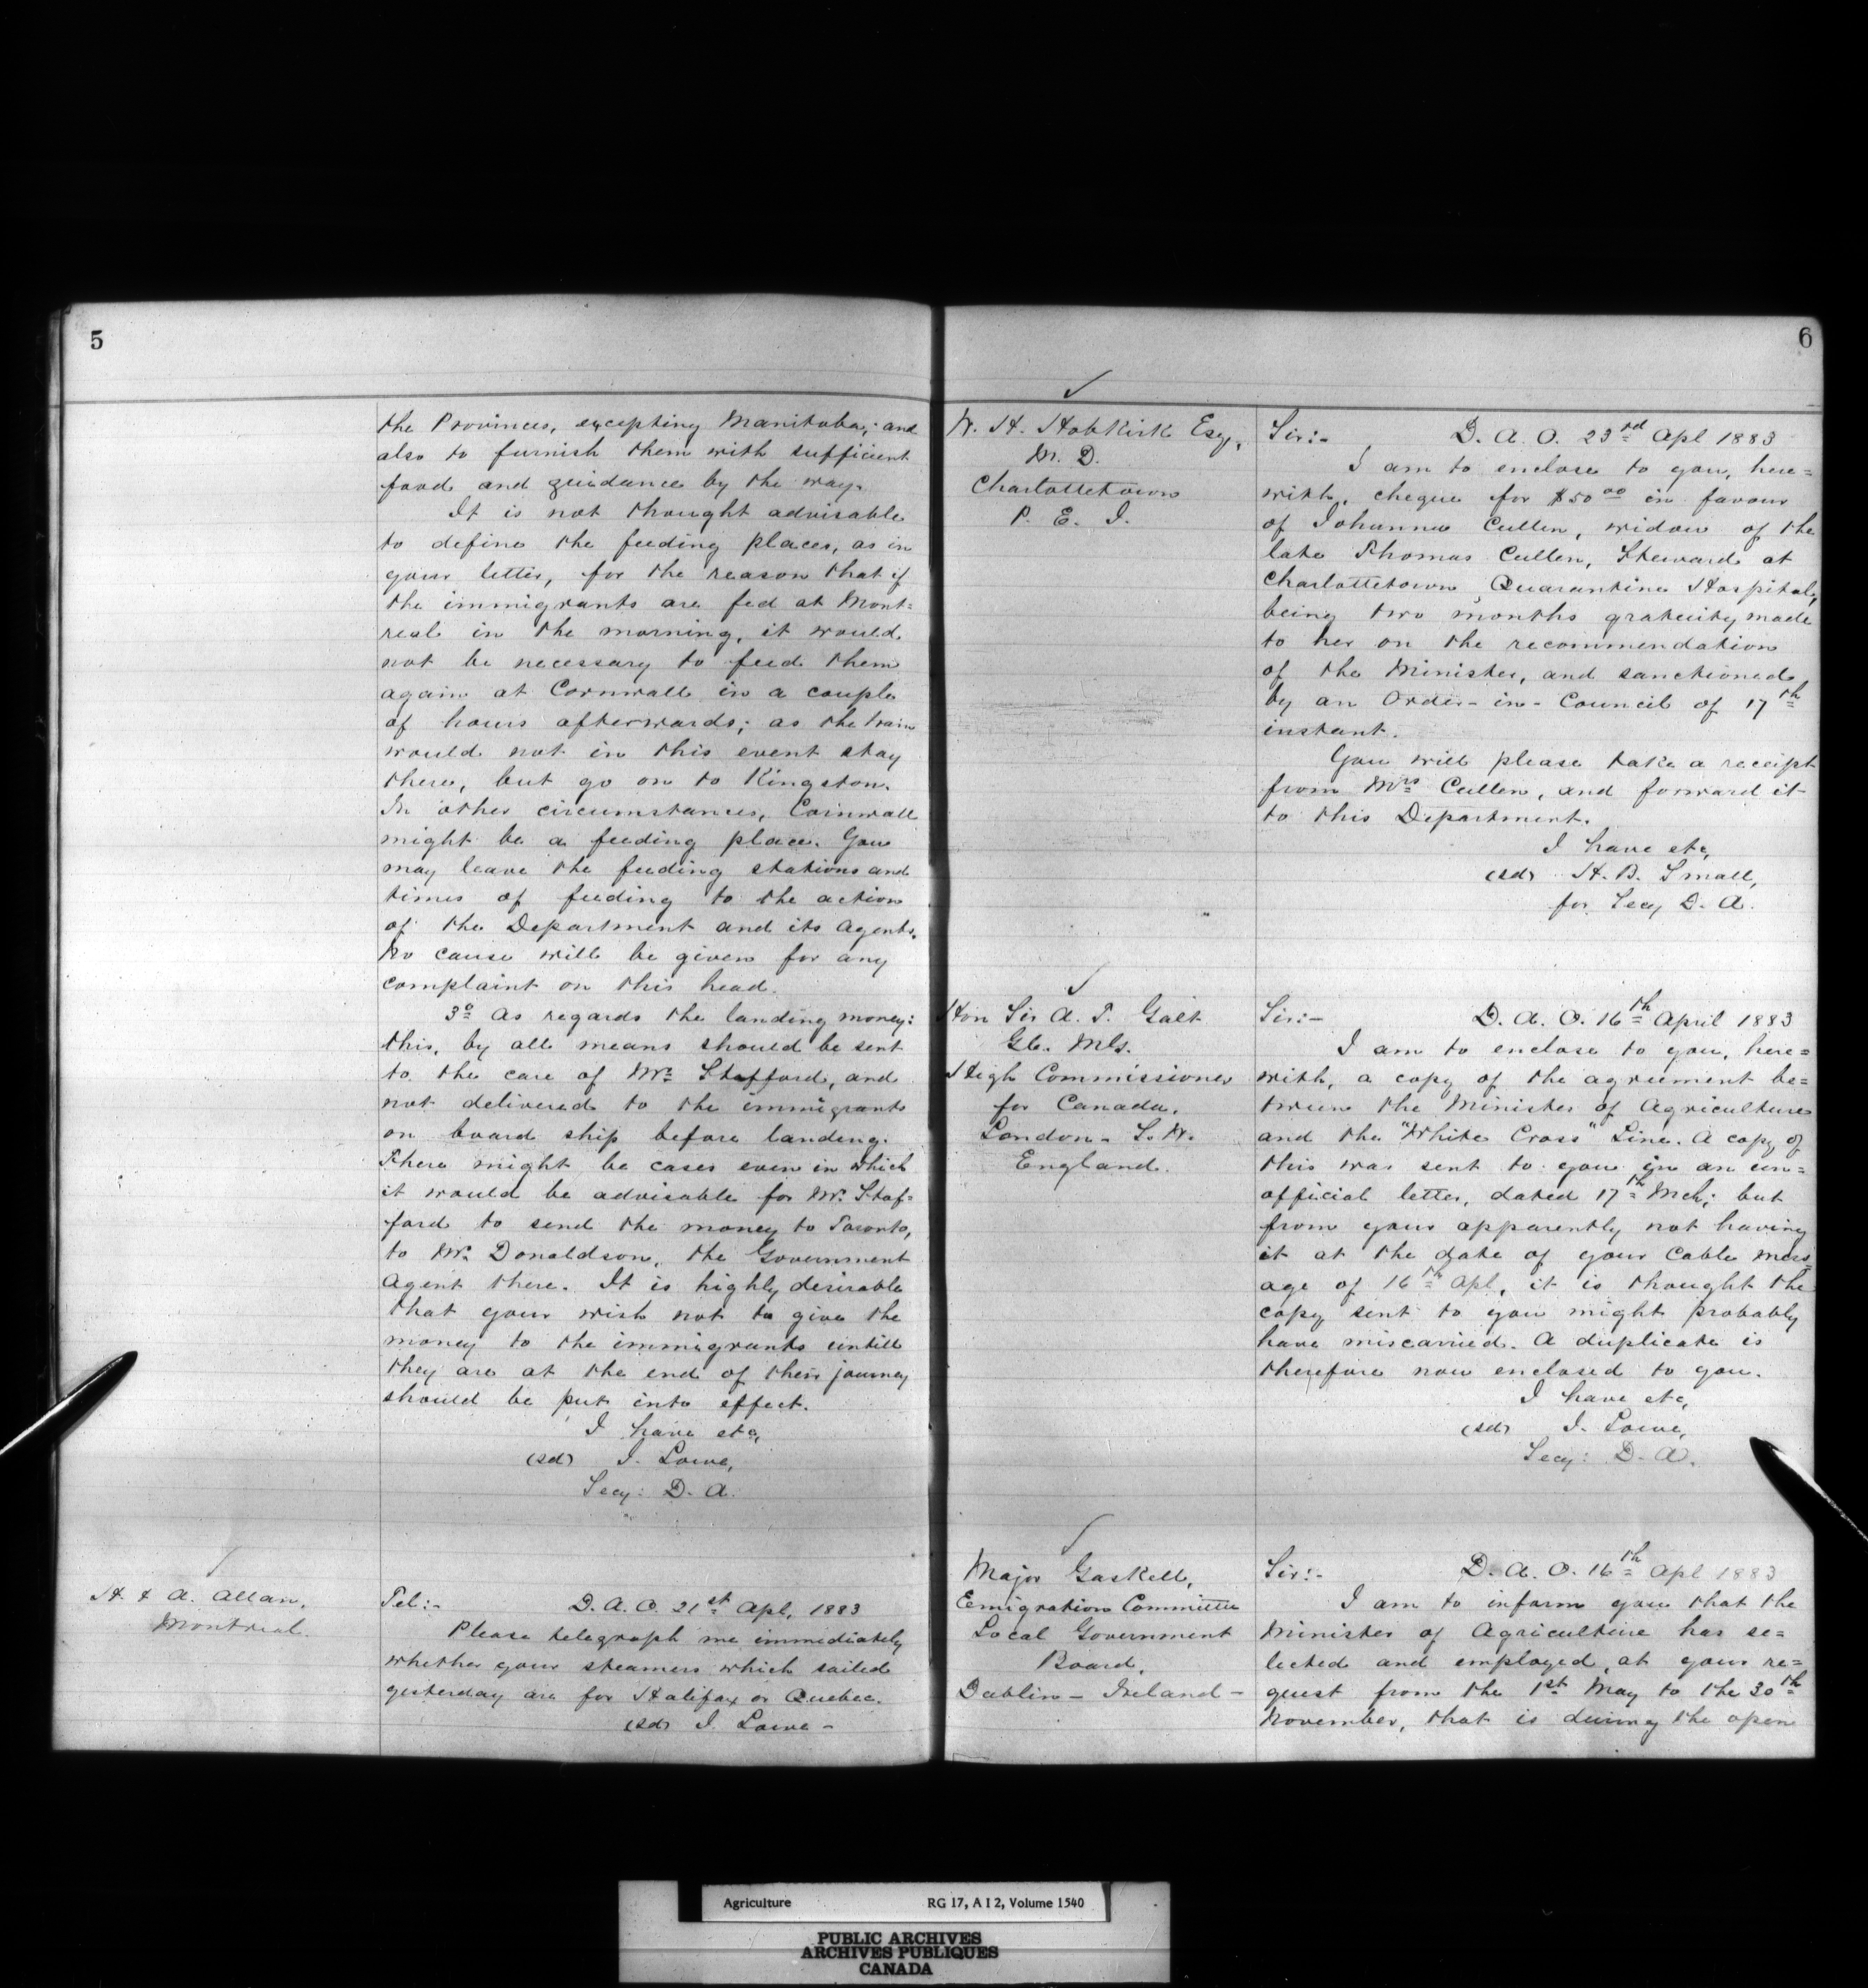 5
the Provinces, excepting Manitoba; and
also to furnish them with sufficient
food and guidance by the way.
It is not thought advisable
to define the feeding places, as in
your letter, for the reason that if
the immigrants are fed at Mont=
real in the morning, it would
not be necessary to feed them
again at Cornwall in a couple
of hours afterwards; as the train
would not in this event stay
there, but go on to Kingston.
In other circumstances, Cornwall
might be a feeding place. You
may leave the feeding stations and
times of feeding to the action
of the Department and its Agents.
No cause will be given for any
complaint on this head.
3º As regards the landing money:
this, by all means should be sent
to the care of Mr. Stafford, and
not delivered to the immigrants
on board ship before landing.
There might be cases even in which
it would be advisable for Mr. Staf=
ford to send the money to Toronto,
to Mr. Donaldson, the Government
Agent there. It is highly desirable
that your wish not to give the
money to the immigrants untill
they are at the end of their journey
should be put into effect.
I have etc,
(sd) J. Lowe,
Secy: D. A.
H. & A. Allan,
Montreal.
Tel:- D. A. O. 21st Apl, 1883
Please telegraph me immediately
whether your steamers which sailed
yesterday are for Halifax or Quebec.
(sd) J. Lowe -
6
W. H. Hobkirk Esq,
M. D.
Charlottetown
P. E. I.
Sir:- D. A. O. 23rd Apl 1883
I am to enclose to you, here=
with, cheque for $50 00 in favour
of Johanna Cullen, widow of the
late Thomas Cullen, Steward at
Charlottetown Quarantine Hospital,
being two months gratuity made
to her on the recommendation
of the Minister, and sanctioned
by an Order-in-Council of 17th
instant.
You will please take a receipt
from Mrs Cullen, and forward it
to this Department.
I have etc,
(sd) H. B. Small,
for Secy D. A.
Hon Sir A. T. Galt
G.C. M.G.
High Commissioner
for Canada,
London - S. W.
England.
Sir:- D. A. O. 16th April 1883
I am to enclose to you, here=
with, a copy of the agreement be=
tween the Minister of Agriculture
and the "White Cross" Line. A copy of
this was sent to you in an un=
official letter, dated 17th Mch; but
from your apparently not having
it at the date of your Cable mess=
age of 16th Apl, it is thought the
copy sent to you might probably
have miscarried. A duplicate is
therefore now enclosed to you.
I have etc,
(sd) J. Lowe,
Secy: D. A.
Major Gaskell,
Emigration Committee
Local Government
Board,
Dublin - Ireland -
Sir:- D. A. O. 16th Apl 1883
I am to inform you that the
Minister of Agriculture has se=
lected and employed, at your re=
quest from the 1st May to the 30th
November, that is during the open
Agriculture RG 17, A I 2, Volume 1540
PUBLIC ARCHIVES
ARCHIVES PUBLIQUES
CANADA